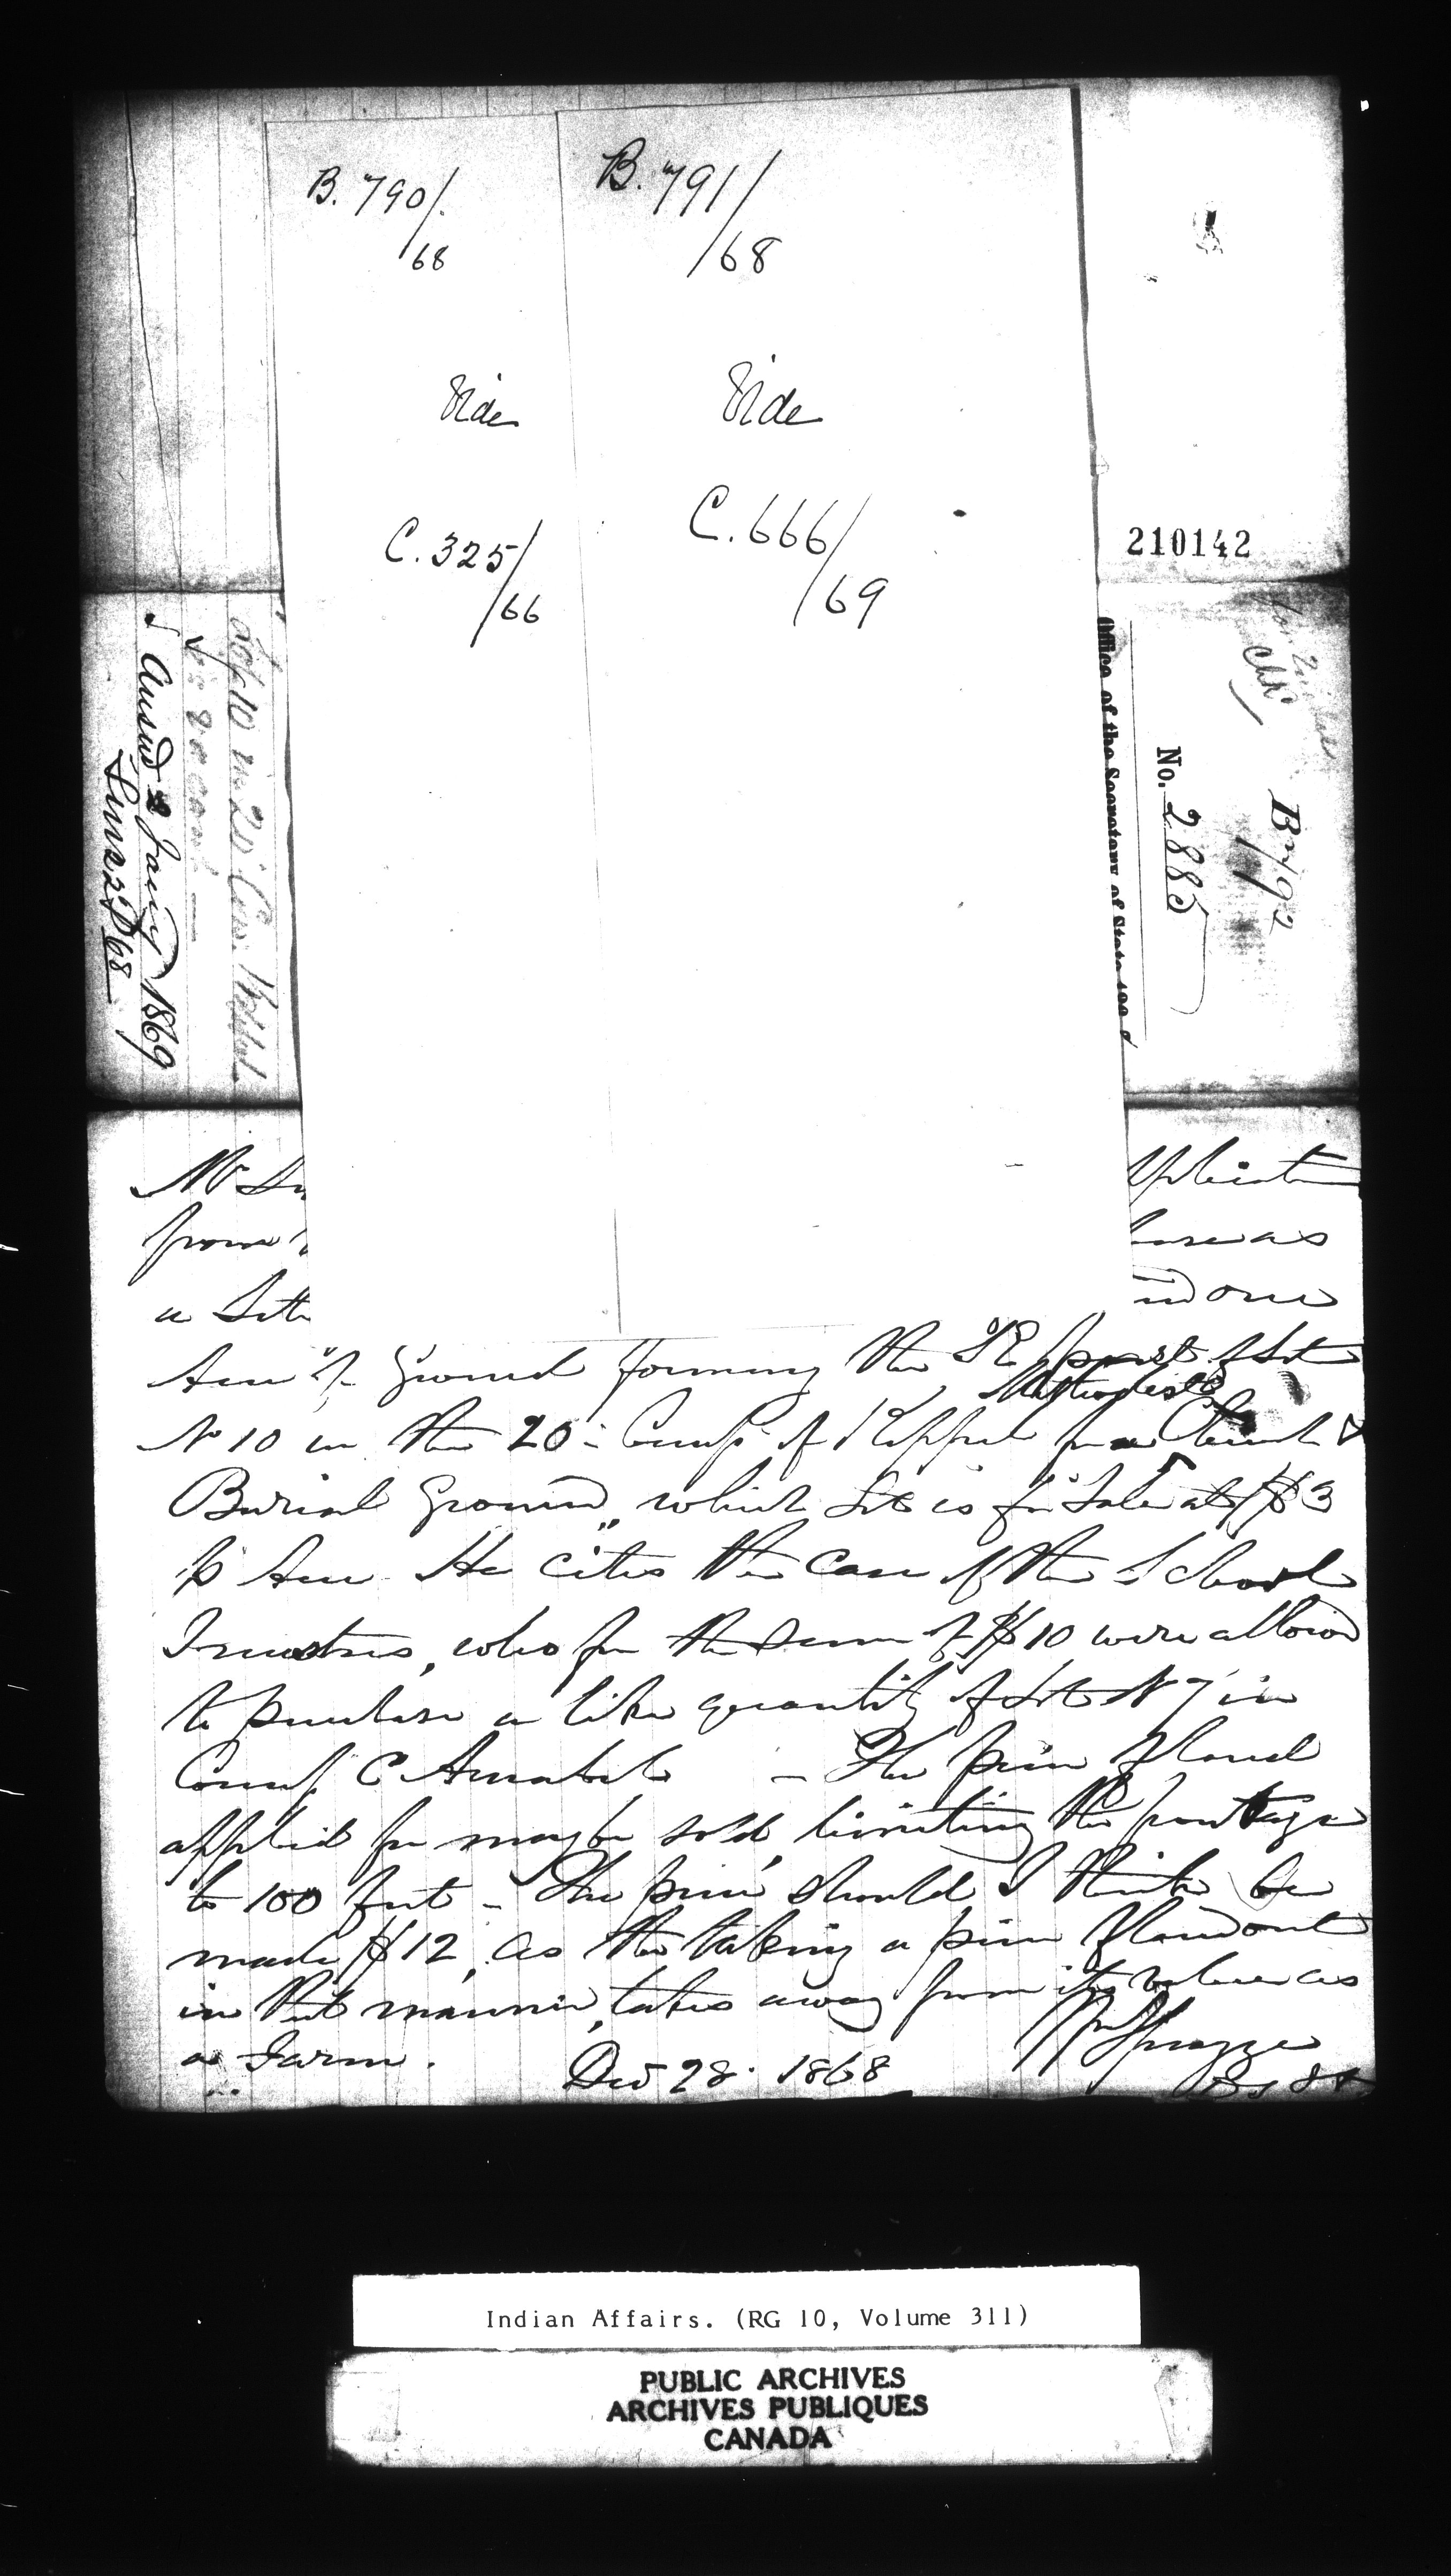 B. 790/.
68
Vide
C. 325/
/66
B. 791/
/68
Vide
C. 666/
/69
210142
Office of the Secretary of State
No. 2885
B 792
Lot 10 in 20 Con. Keppel
Answd 2 Jany 1869
from
a
Acre of Ground forming the SE part of Lot
Methodist
No 10 in the 20 - Conc. of Keppel for a Church &
Burial Ground, which Lot is for Sale at $3
P Acre He cites the case of the School
Trustees, who for the Sum of $10 were allowed
to purchase a like quantity of Lot No 7 in
Conc. C Amabel - The piece of land
applied for may be sold, limiting the frontage
to 100 feet - The price should I think be
made $12, as the taking a piece of land out
in that manner, takes away from its value as
a Farm.
Dec 28. 1868
Spragge
Indian Affairs. (RG 10, Volume 311)
PUBLIC ARCHIVES
ARCHIVES PUBLIQUES
CANADA